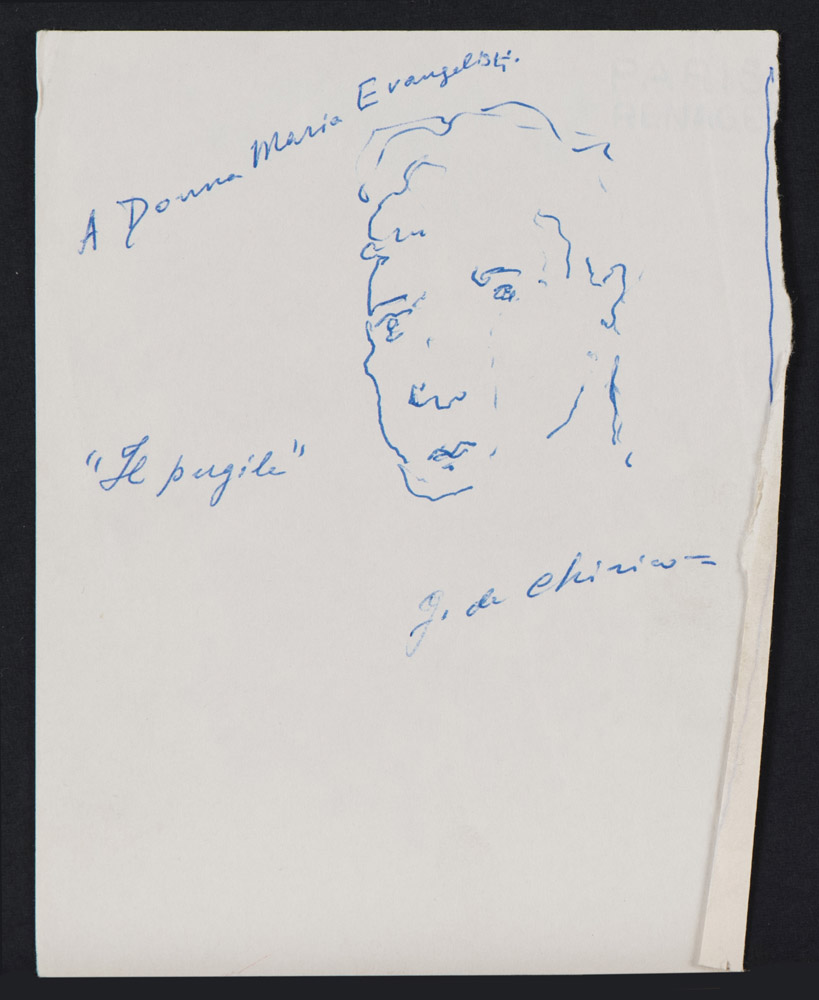 A Donna Maria Evangelisti.
"Il pugile"
G. de Chirico